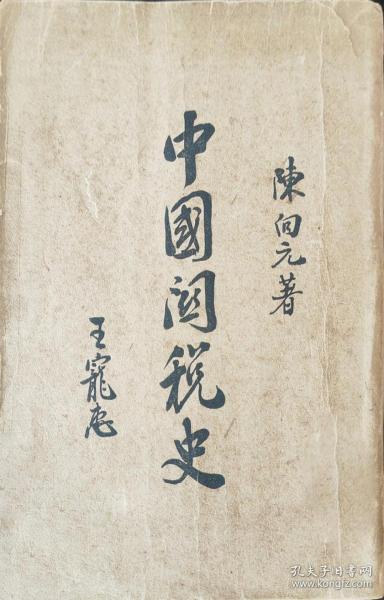 陳向元著
中國関税史
王寵惠
孔夫子旧书网
www.kongfz.com